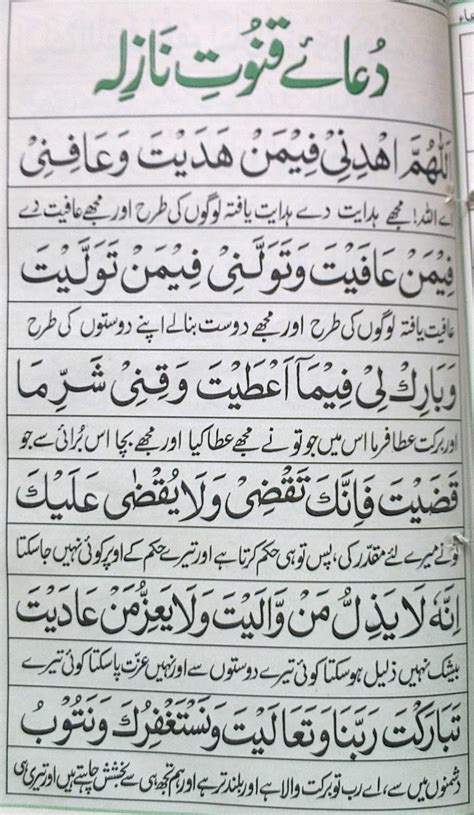 دُعائے قنوتِ نازلہ
اَللّٰهُمَّ اهْدِنِيْ فِيْمَنْ هَدَيْتَ وَعَافِنِيْ
اے اللہ! مجھے ہدایت دے ہدایت یافتہ لوگوں کی طرح اور مجھے عافیت دے
فِيْمَنْ عَافَيْتَ وَتَوَلَّنِيْ فِيْمَنْ تَوَلَّيْتَ
عافیت یافتہ لوگوں کی طرح اور مجھے دوست بنالے اپنے دوستوں کی طرح
وَبَارِكْ لِيْ فِيْمَآ اَعْطَيْتَ وَقِنِيْ شَرَّ مَا
اور برکت عطا فرما اس میں جو تو نے مجھے عطا کیا اور مجھے بچا اس بُرائی سے جو
قَضَيْتَ فَاِنَّكَ تَقْضِيْ وَلَا يُقْضٰى عَلَيْكَ
تونے میرے لئے مقدّر کی، پس تو ہی حکم کرتا ہے اور تیرے حکم کے اوپر کوئی نہیں جاسکتا
اِنَّهٗ لَا يَذِلُّ مَنْ وَّالَيْتَ وَلَا يَعِزُّ مَنْ عَادَيْتَ
بیشک نہیں ذلیل ہوسکتا کوئی تیرے دوستوں سے اور نہیں عزّت پاسکتا کوئی تیرے
تَبَارَكْتَ رَبَّنَا وَتَعَالَيْتَ وَنَسْتَغْفِرُكَ وَنَتُوْبُ
دشمنوں میں سے، اے رب تو برکت والا ہے اور بلند تر ہے اور ہم تجھ ہی سے بخشش چاہتے ہیں اور تیری ہی